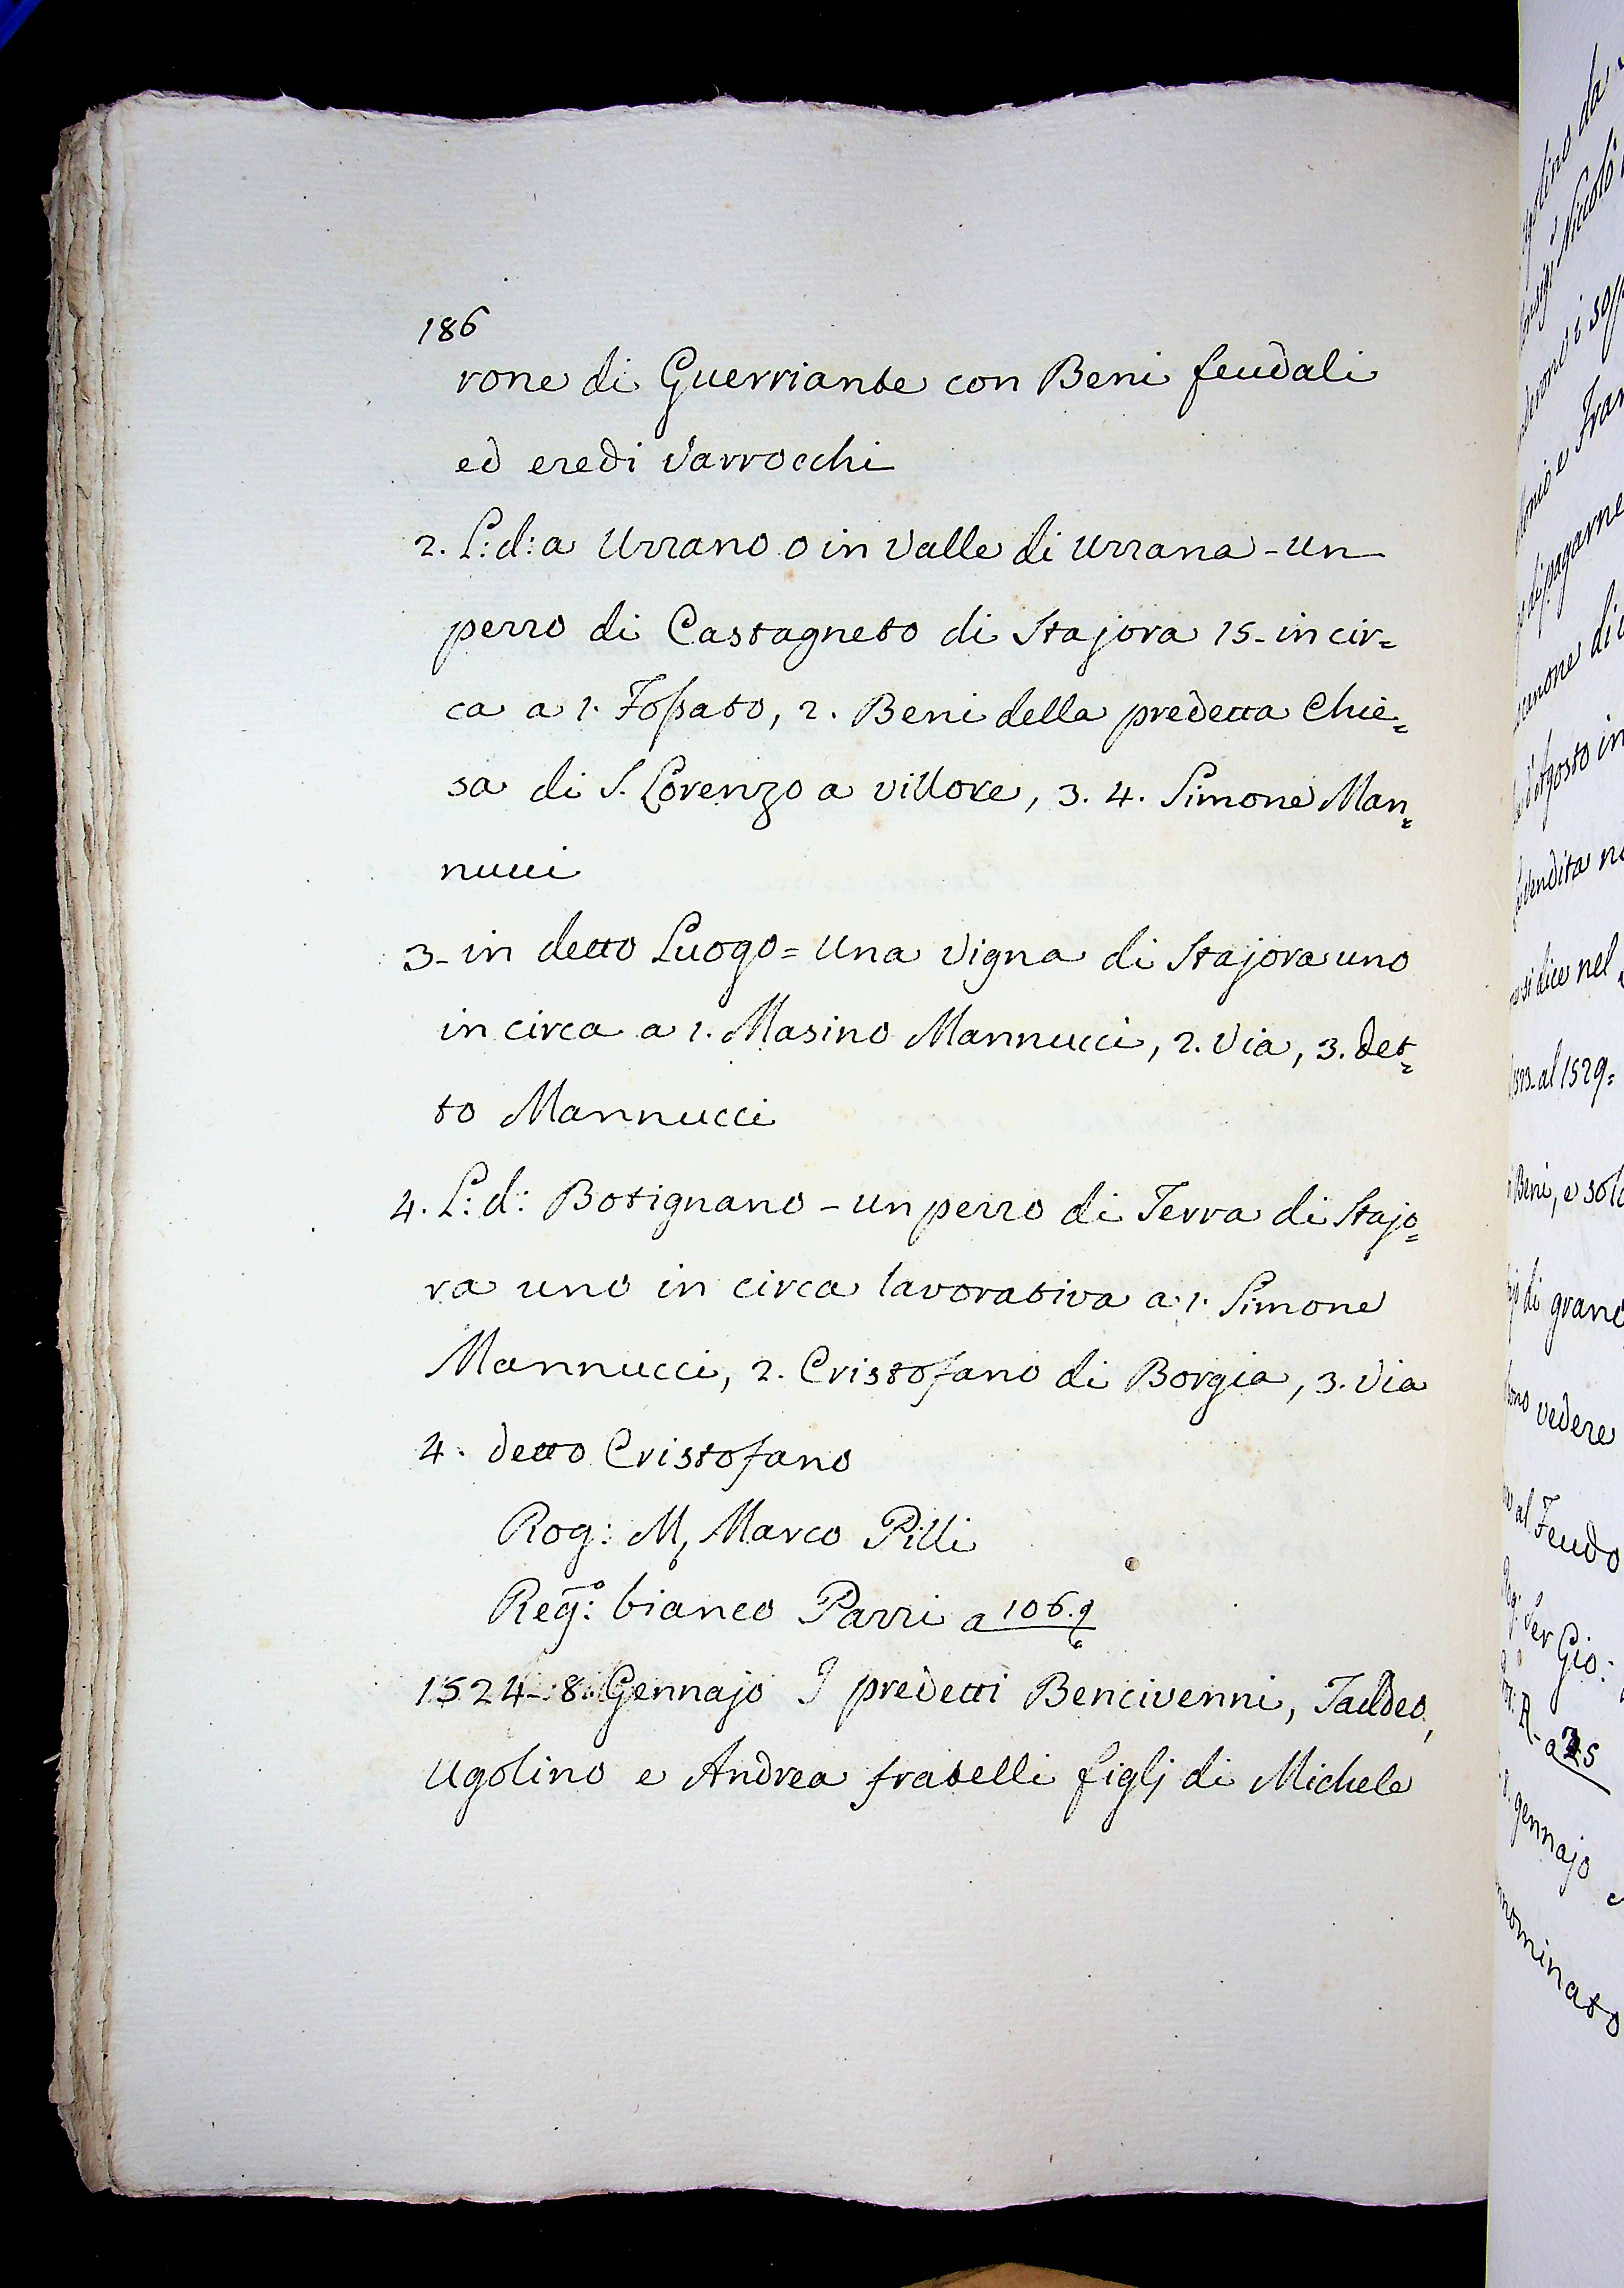 186
rone di Guerriante con Beni feudali
ed eredi Varrocchi
2. L: d: a Uzzano o in Valle di Uzzana - un
pezzo di Castagneto di Stajora 15 - in cir=
ca a 1. Fossato, 2. Beni della predetta Chie=
sa di S. Lorenzo a Villore, 3. 4. Simone Man=
nucci
3 - in detto Luogo = una Vigna di Stajora uno
in circa a 1. Masino Mannucci, 2. Via, 3. det=
to Mannucci
4. L: d: Botignano - un pezzo di Terra di Stajo=
ra uno in circa lavorativa a 1. Simone
Mannucci, 2. Cristofano di Borgia, 3. Via
4. detto Cristofano
Rog: M, Marco Pilli
Reg:º bianco Pazzi a 106.
1524 - 8. Gennajo I predetti Bencivenni, Taddeo,
Ugolino e Andrea fratelli figlj di Michele
Niccolò
pagarne
Agosto in
vendita
si dice nel
al 1529 =
Beni, e
di grano
vedere
al Feudo
Ser Gio:
gennajo